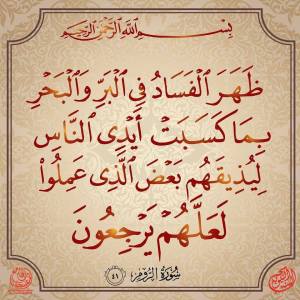 بِسْمِ اللَّهِ الرَّحْمَنِ الرَّحِيمِ
ظَهَرَ الْفَسَادُ فِي الْبَرِّ وَالْبَحْرِ
بِمَا كَسَبَتْ أَيْدِي النَّاسِ
لِيُذِيقَهُم بَعْضَ الَّذِي عَمِلُوا
لَعَلَّهُمْ يَرْجِعُونَ
سُورَةُ الرُّومِ ٤١